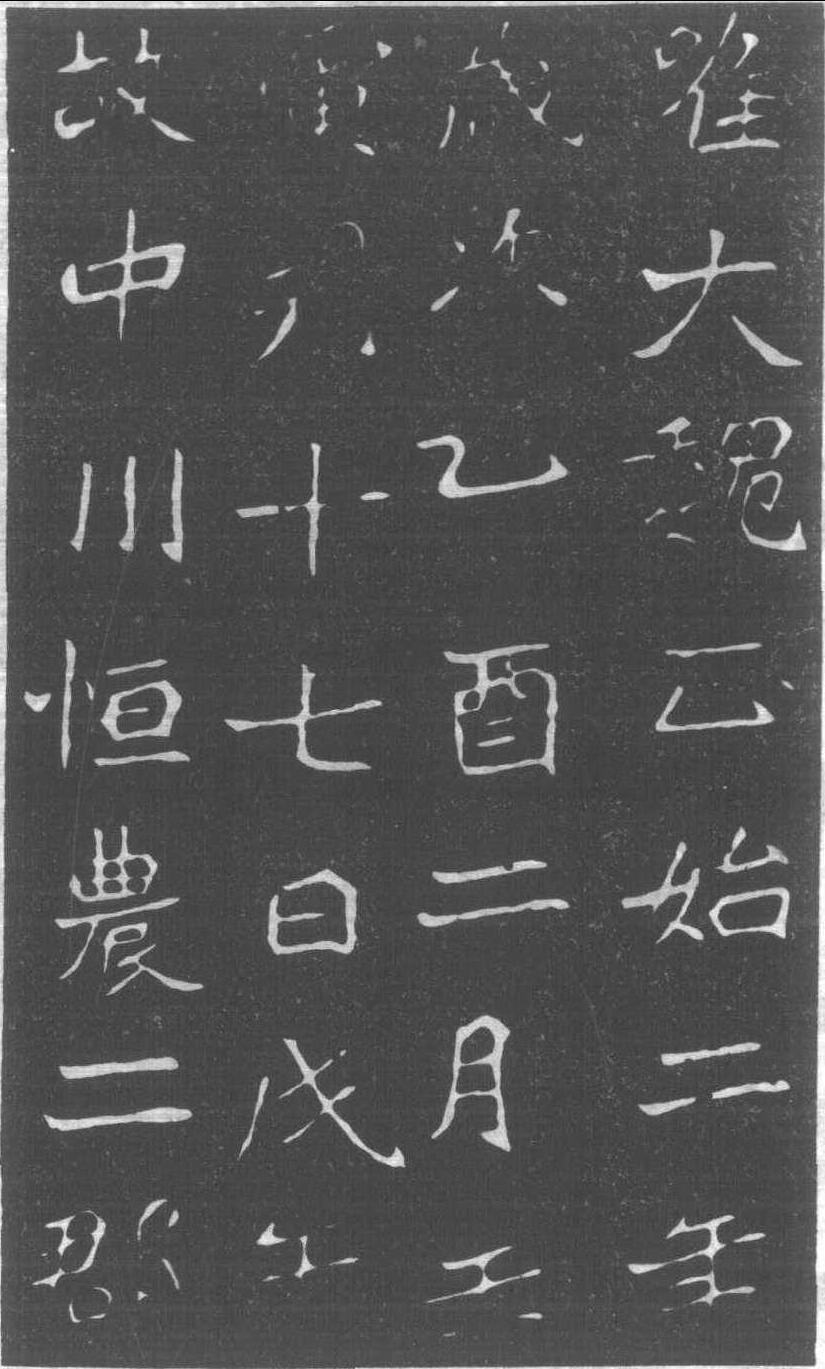 唯大魏正始二年
歲次乙酉二月壬
寅朔十七日戊午
故中川恒農二郡